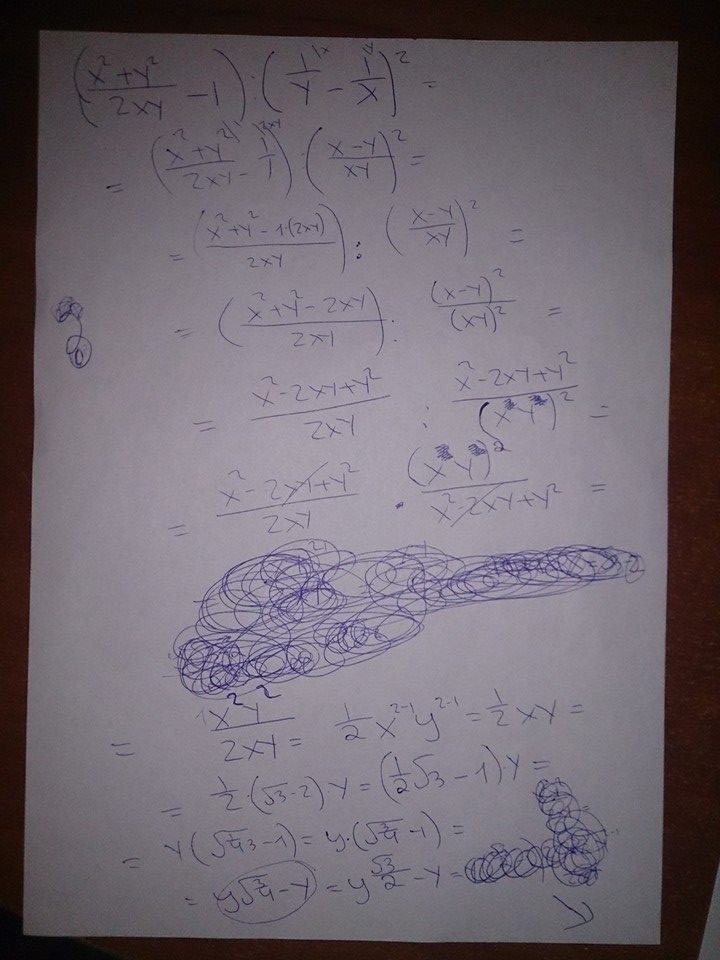 (x²+y²/2xy - 1) : (1/y - 1/x)² =
= (x²+y²/2xy - 1/1) : (x-y/xy)² =
= (x²+y²-1·(2xy)/2xy) : (x-y/xy)² =
= (x²+y²-2xy/2xy) : (x-y)²/(xy)² =
= x²-2xy+y²/2xy : x²-2xy+y²/(xy)² =
= x²-2xy+y²/2xy · (xy)²/x²-2xy+y² =
= x²y²/2xy = 1/2 x²⁻¹y²⁻¹ = 1/2 xy =
= 1/2 · (√3-2) · y = (1/2√3 - 1) · y =
= y(√1/4 3 - 1) = y · (√3/4 - 1) =
= y√3/4 - y = y √3/2 - y =